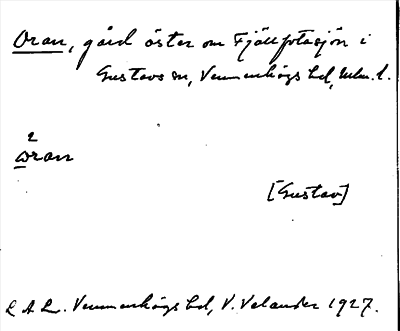 Oran, gård öster om Fjällfotasjön i
Gustavs sn, Vemmenhögs hd, Mlm. l.
2
wran
[Gustav]
L A L. Vemmenhögs hd, V. Velander 1927.